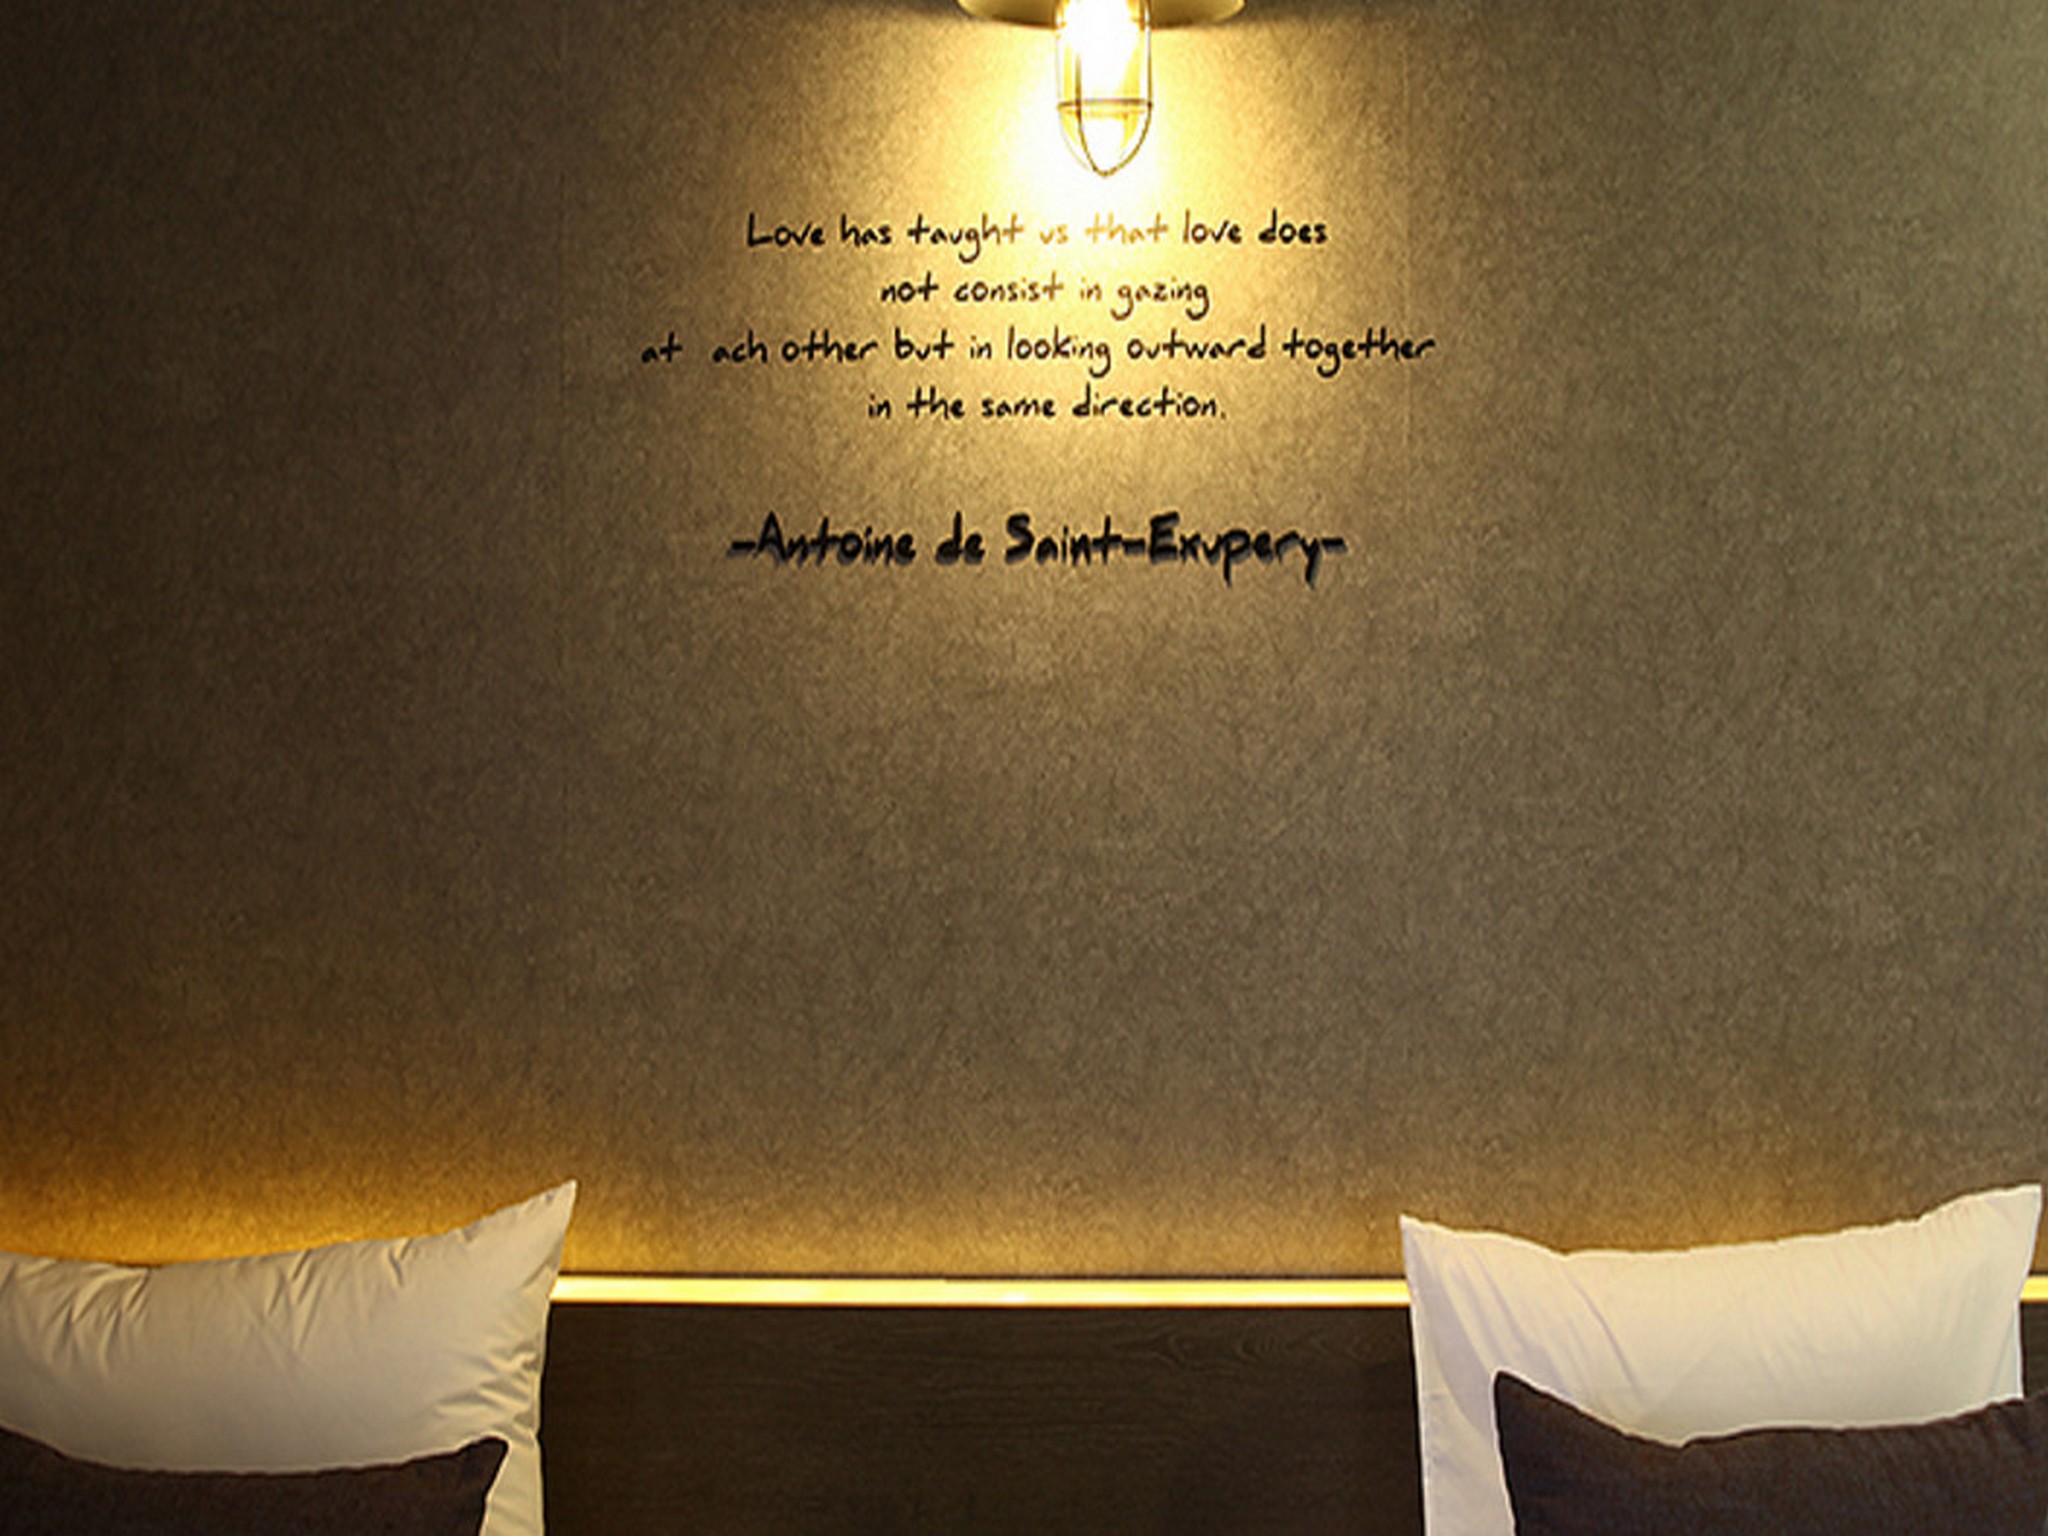 Love has taught us that love does
not consist in gazing
at ach other but in looking outward together
in the same direction.
-Antoine de Saint-Exupery-